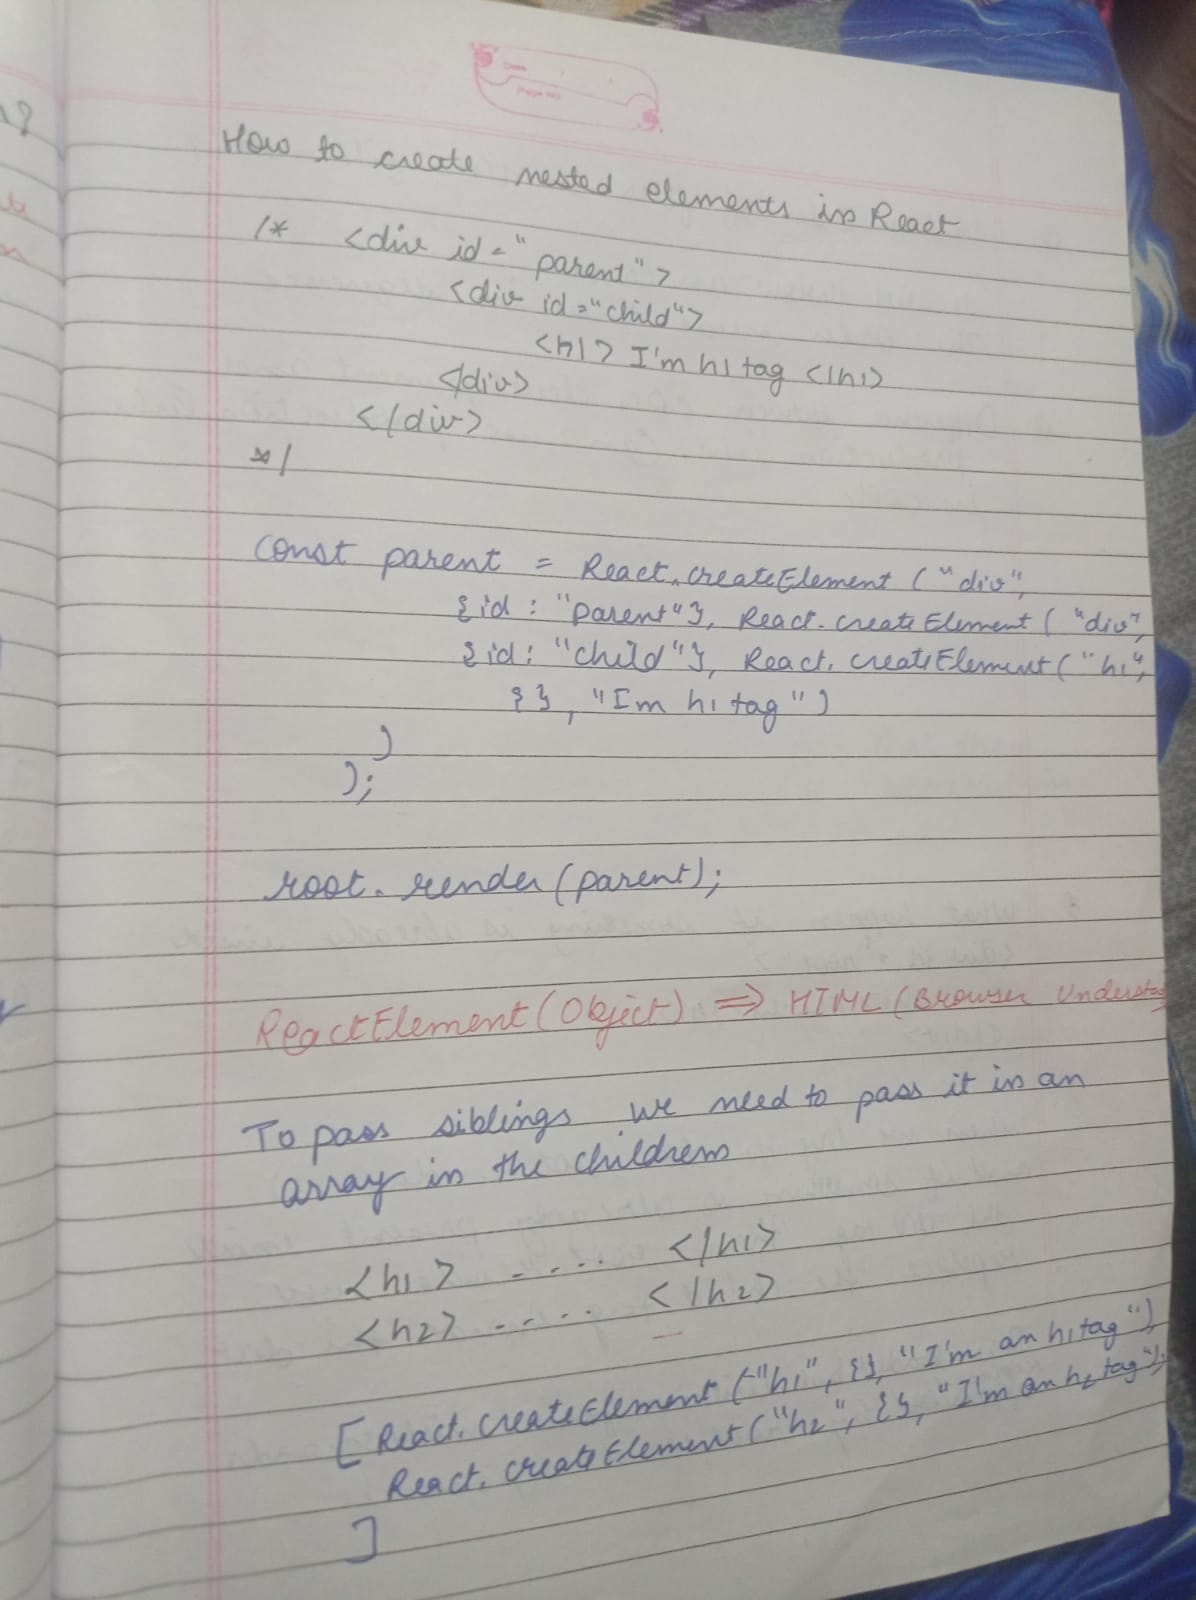 How to create nested elements in React
/* <div id = "parent">
<div id = "child">
<h1> I'm h1 tag </h1>
</div>
</div>
*/
const parent = React.createElement ("div",
{id : "parent"}, React.createElement ( "div",
{id: "child"}, React.createElement ("h1",
{}, "I'm h1 tag")
)
);
root.render(parent);
ReactElement(Object) => HTML (Browser
To pass siblings we need to pass it in an
array in the children
<h1> .... </h1>
<h2> .... </h2>
[ React.createElement ("h1", {}, "I'm an h1 tag"),
React.createElement ("h2", {}, "I'm an h2 tag"),
]